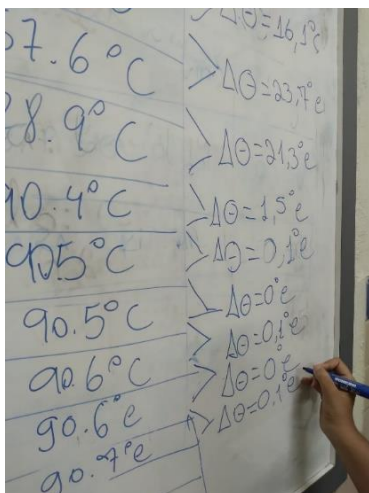 7.6°C
8.9°C
90.4°C
90.5°C
90.5°C
90.6°C
90.6°e
90.7°e
ΔΘ=16,1°c
ΔΘ=23,7°e
ΔΘ=21,3°e
ΔΘ=1,5°e
ΔΘ=0,1°e
ΔΘ=0°e
ΔΘ=0,1°e
ΔΘ=0°e
ΔΘ=0.1°e